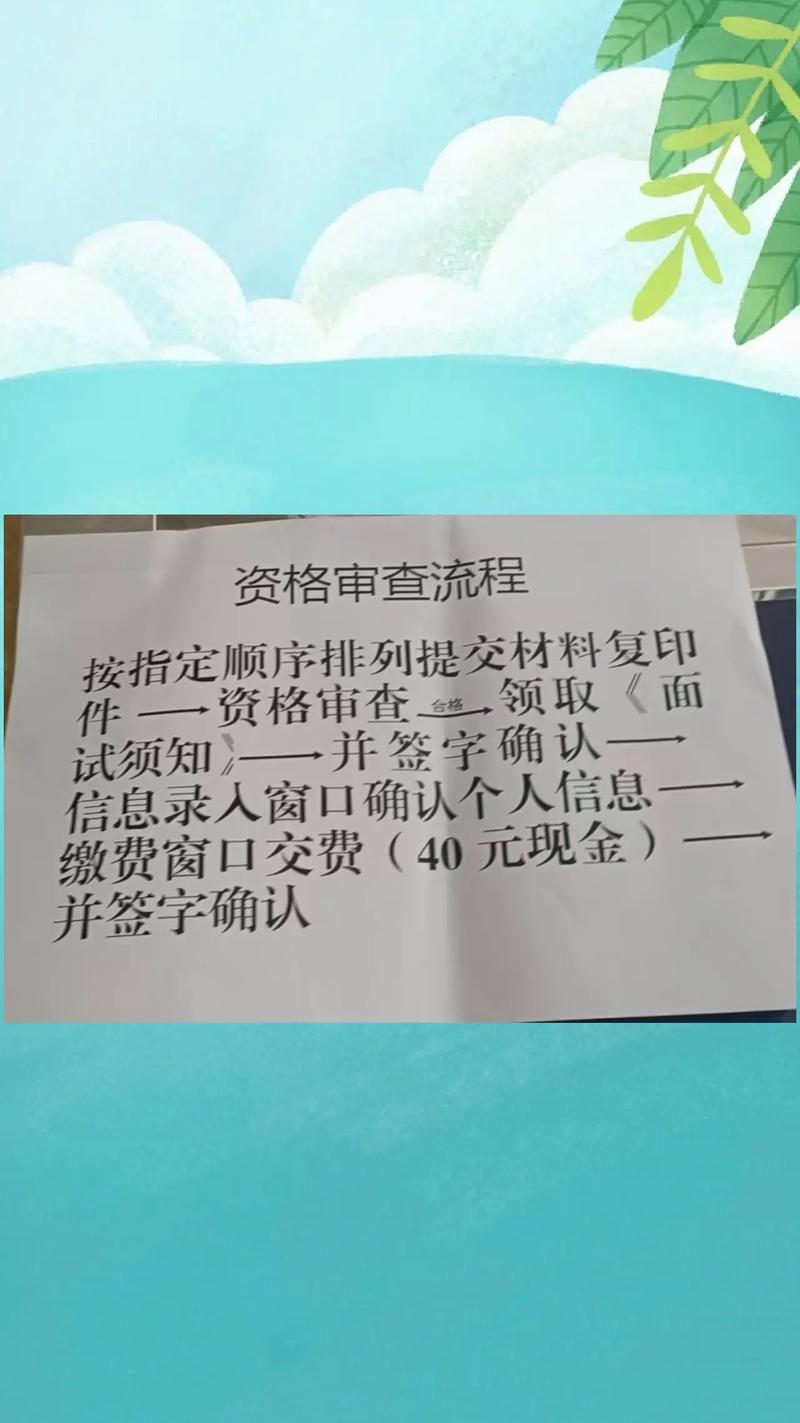 资格审查流程
按指定顺序排列提交材料复印
件 → 资格审查 合格→ 领取《面
试须知》→ 并签字确认 →
信息录入窗口确认个人信息 →
缴费窗口交费（40 元现金）→
并签字确认